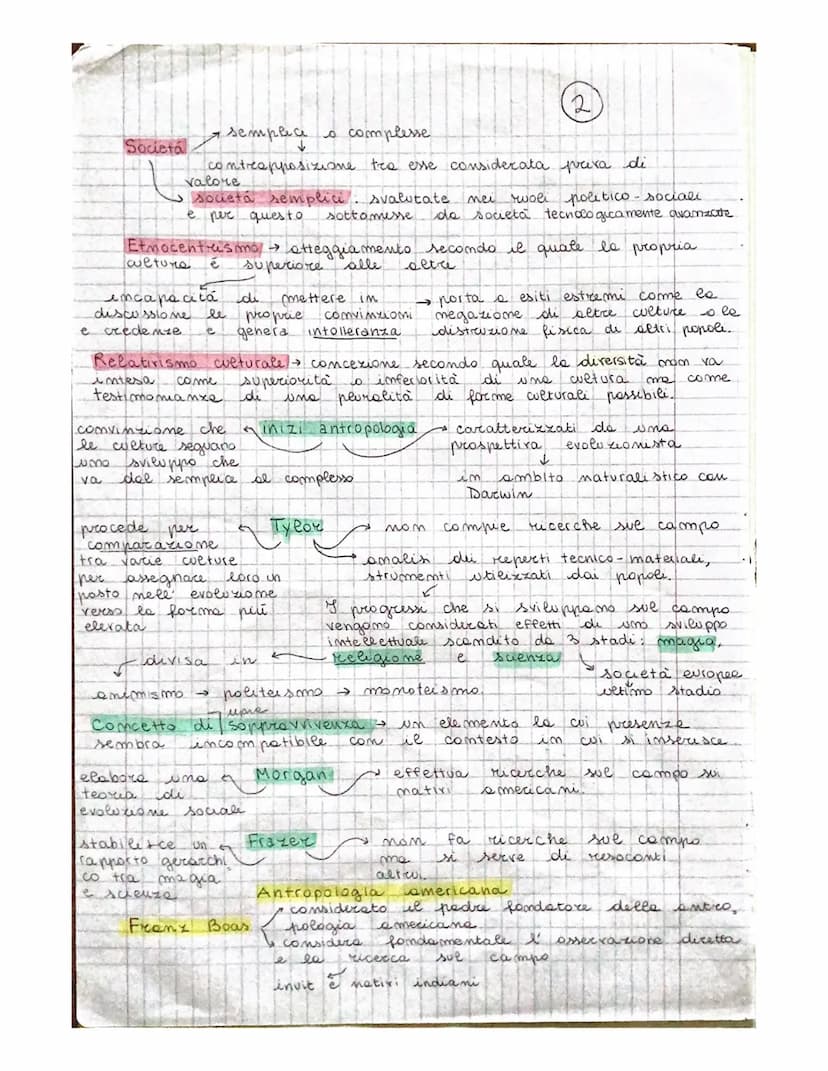 2
semplici o complesse
Società
contrapposizione tra esse considerata priva di
valore
società semplici: svalutate nei ruoli politico-sociali
e per questo sottomesse da società tecnologicamente avanzate.
Etnocentrismo → atteggiamento secondo il quale la propria
cultura è superiore alle altre
incapacità di mettere in
discussione le proprie convinzioni
e credenze e genera intolleranza
→ porta a esiti estremi come la
negazione di altre culture o la
distruzione fisica di altri popoli.
Relativismo culturale → concezione secondo quale la diversità non va
intesa come superiorità o inferiorità di una cultura ma come
testimonianza di una pluralità di forme culturali possibili.
inizi antropologia
convinzione che
le culture seguano
uno sviluppo che
va dal semplice al complesso
caratterizzati da una
prospettiva evoluzionista
↓
in ambito naturalistico con
Darwin
Tylor
procede per
comparazione
tra varie culture
per assegnare loro un
posto nell' evoluzione
verso la forma più
elevata
non compie ricerche sul campo
analisi dei reperti tecnico-materiali,
strumenti utilizzati dai popoli.
I progressi che si sviluppano sul campo
vengono considerati effetti di uno sviluppo
intellettuale scandito da 3 stadi: magia,
religione e scienza
divisa in
società europee
ultimo stadio
animismo → politeismo → monoteismo.
Concetto di sopprovvivenza → un elemento la cui presenza
sembra incompatibile con il contesto in cui si inserisce.
Morgan
elabora una
teoria di
evoluzione sociale
effettua ricerche sul campo sui
nativi americani.
Frazer
stabilisce un
rapporto gerarchi
co tra magia
e scienza
non fa ricerche sul campo
ma si serve di resoconti
altrui.
Antropologia americana
Franz Boas
considerato il padre fondatore della antro,
pologia americana
considera fondamentale l' osservazione diretta
e la ricerca sul campo
nativi indiani